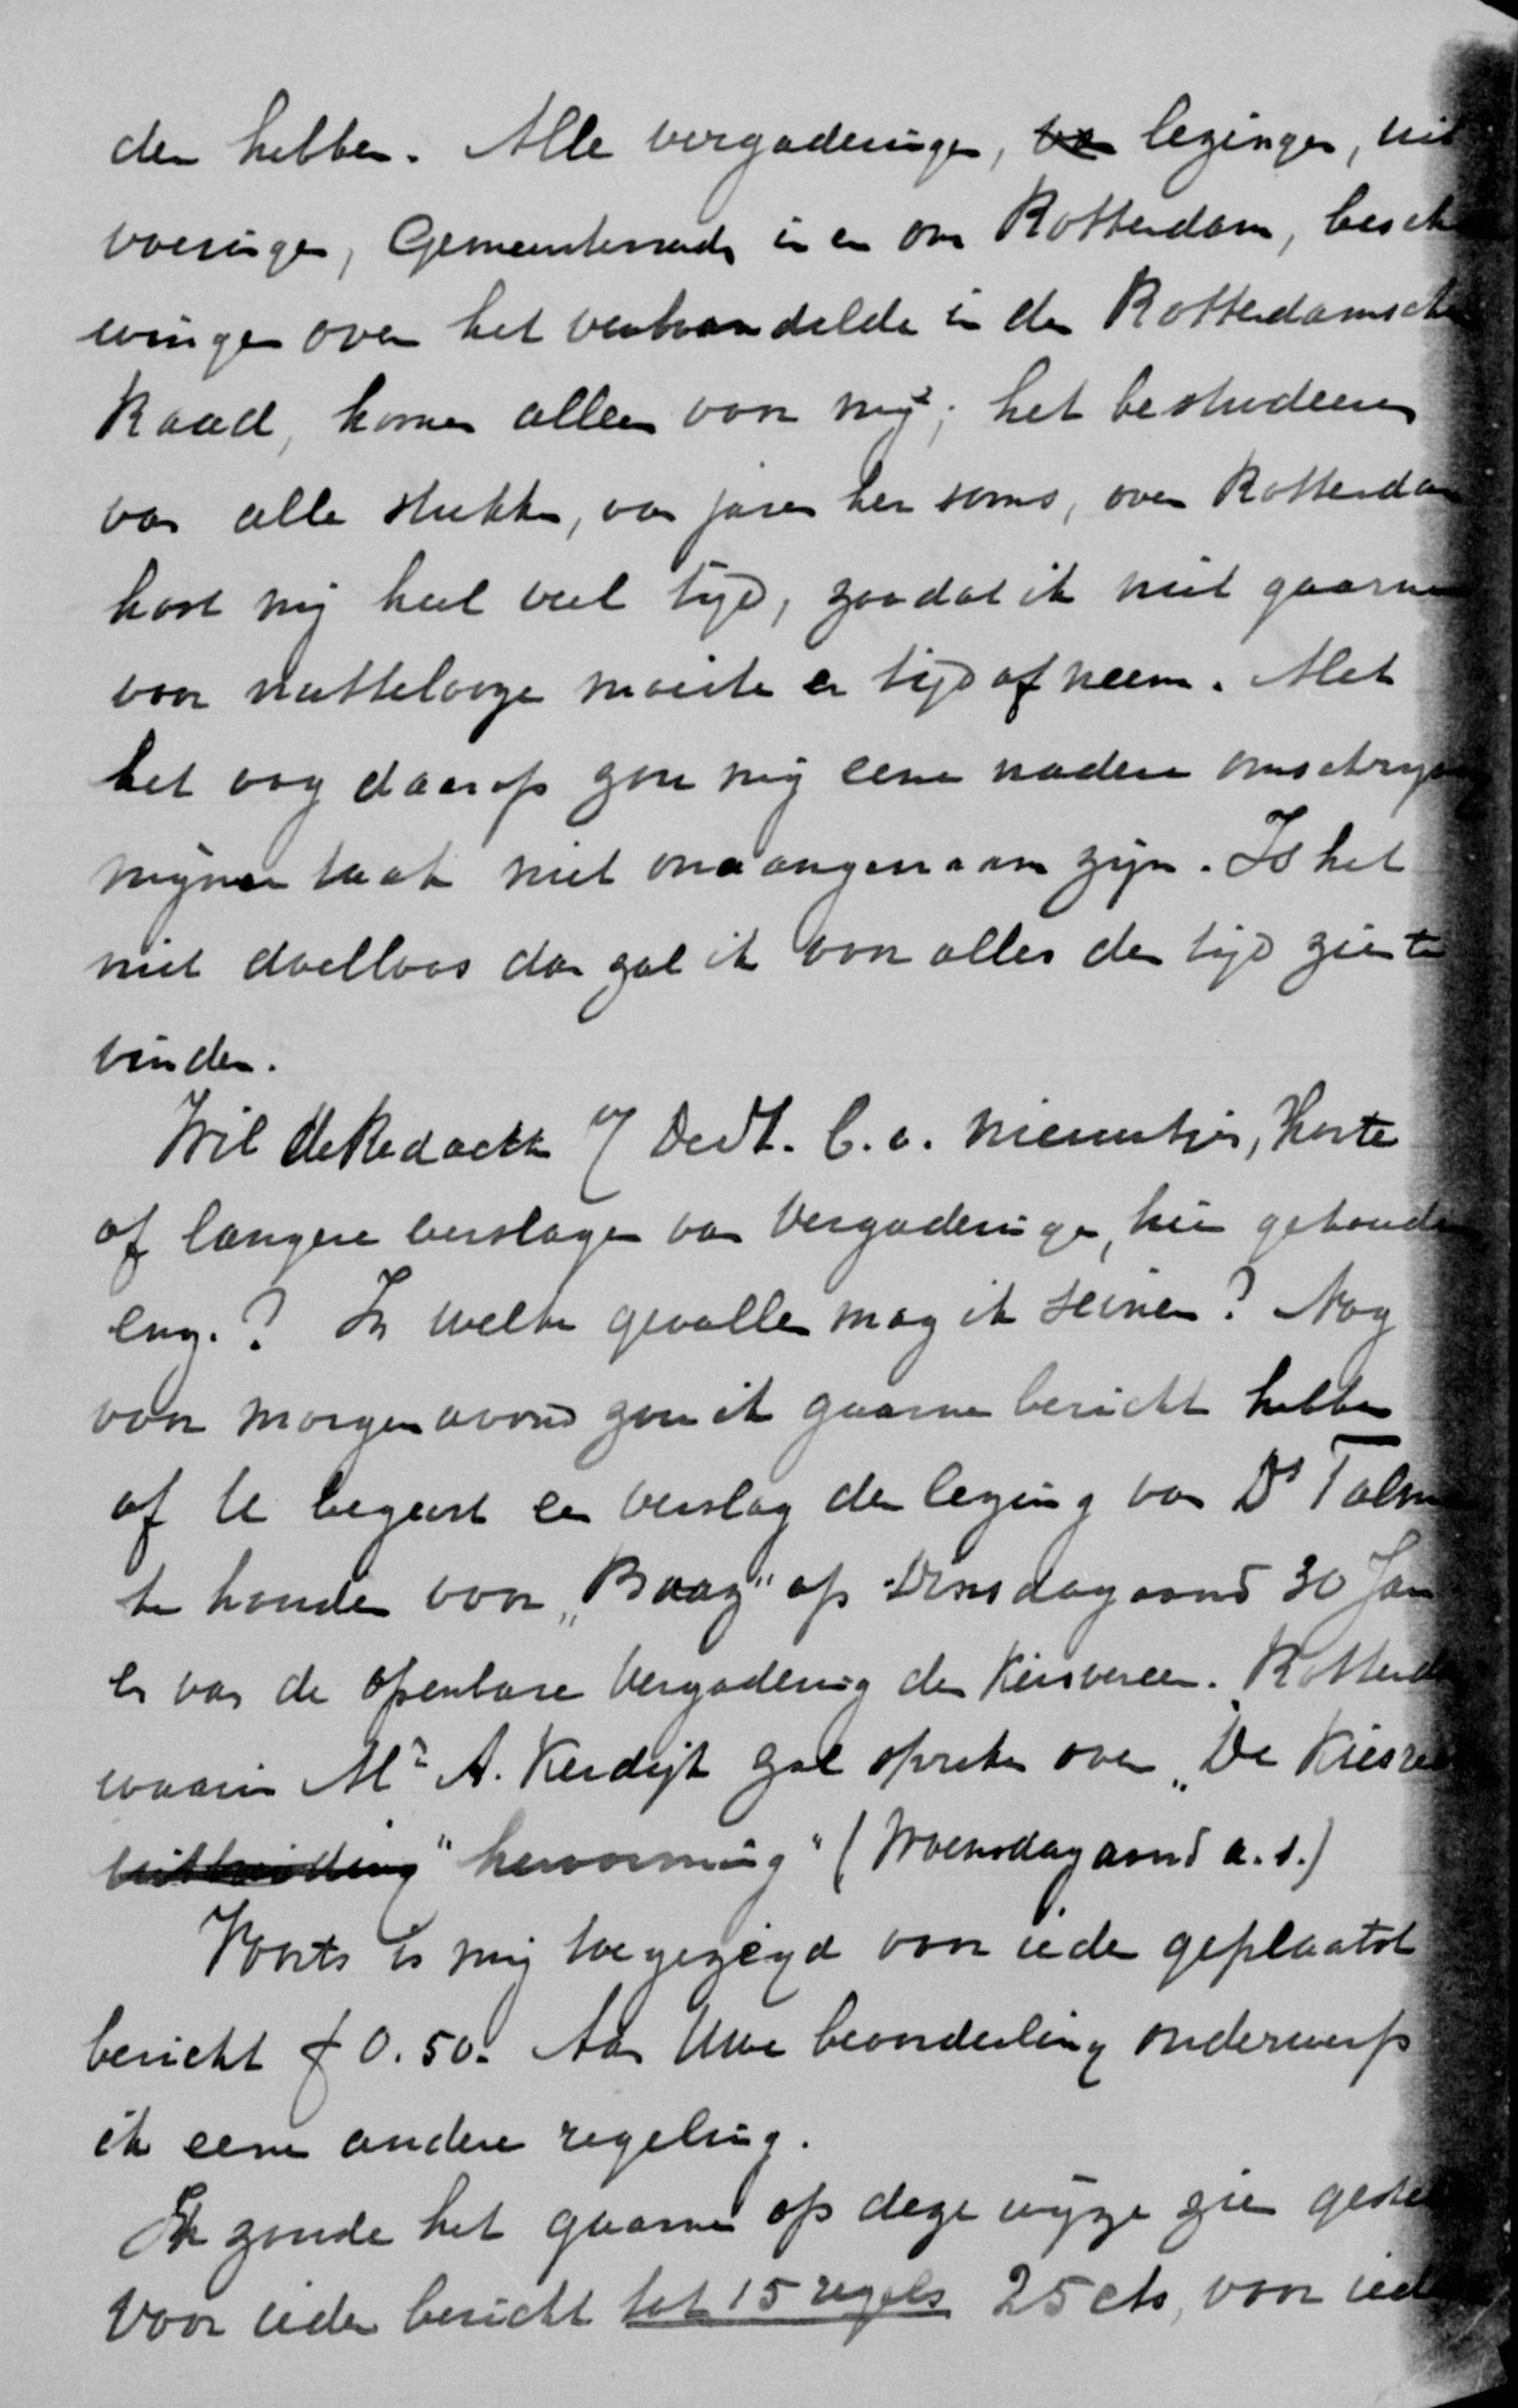 den hebben. Alle vergaderingen, lezingen, uit
voeringen, Gemeenteraads in en om Rotterdam, besch
wingen over het verhandelde in den Rotterdamsche
Raad, komen alleen voor mij; het bestudeeren
van alle stukken, van jaren her soms, over Rotterdam
kost mij heel veel tijd, zoodat ik niet gaarne
voor nuttelooze moeite er tijd af neem. Met
het oog daarop zou mij eene nadere omschrijving
mijner taak niet onaangenaam zijn. Is het
niet doelloos dan zal ik voor alles den tijd zien te
vinden.
Wil de Redactie v/ Dedt. C. a. nieuwtjes, korte
of langere verslagen van Vergaderingen, hier gehouden
enz.? In welke gevallen mag ik seinen? Nog
voor morgenavond zou ik gaarne bericht hebben
of U begeert een verslag der lezing van Ds Talma
te houden voor „Boaz" op Dinsdagavond 30 Jan
en van de openbare Vergadering der Kiesvereen. Rotterdam
waarin Mr A. Kerdijk zal spreken over „De Kiesre
uitbreiding" hervorming" (Woensdagavond a.s.)
Voorts is mij toegezegd voor ieder geplaatst
bericht f 0.50. Aan Uwe beoordeeling onderwerp
ik eene andere regeling.
Ik zoude het gaarne op deze wijze zien gestel
Voor ieder bericht tot 15 regels 25 cts, voor ied